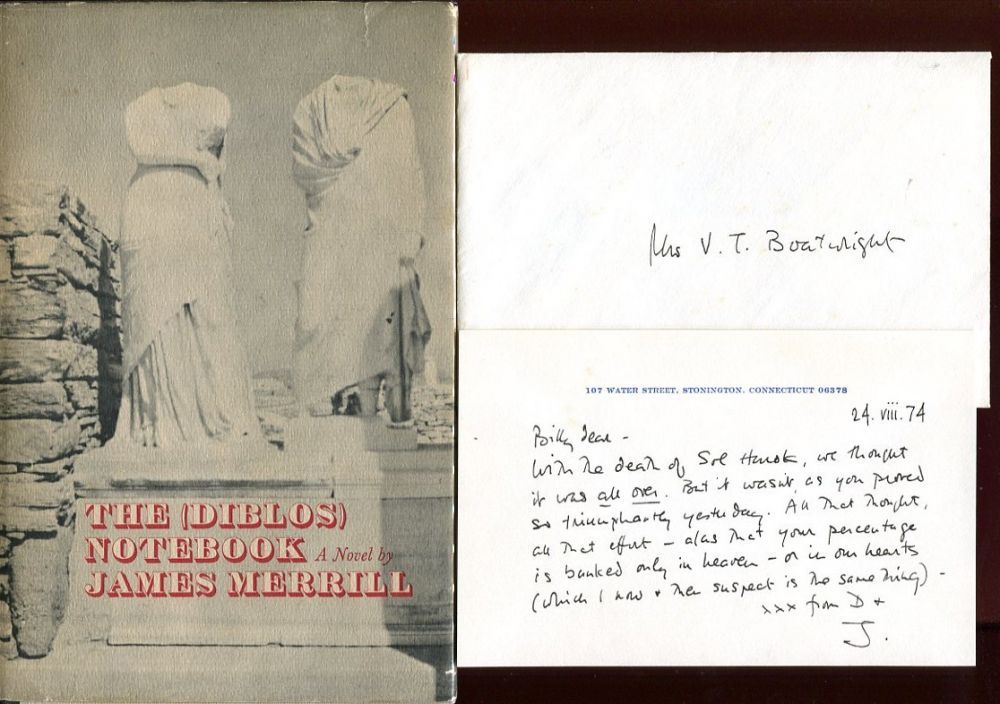 THE (DIBLOS)
NOTEBOOK A Novel by
JAMES MERRILL
Mrs V. T. Boatwright
107 WATER STREET, STONINGTON, CONNECTICUT 06378
24. viii. 74
Billy dear -
With the death of Sol , we thought
it was all over. But it wasn't, as you proved
so triumphantly yesterday. All that thought,
all that effort - alas that your percentage
is banked only in heaven - or in our hearts
(which I now & then suspect is the same thing) -
xxx from D +
J.